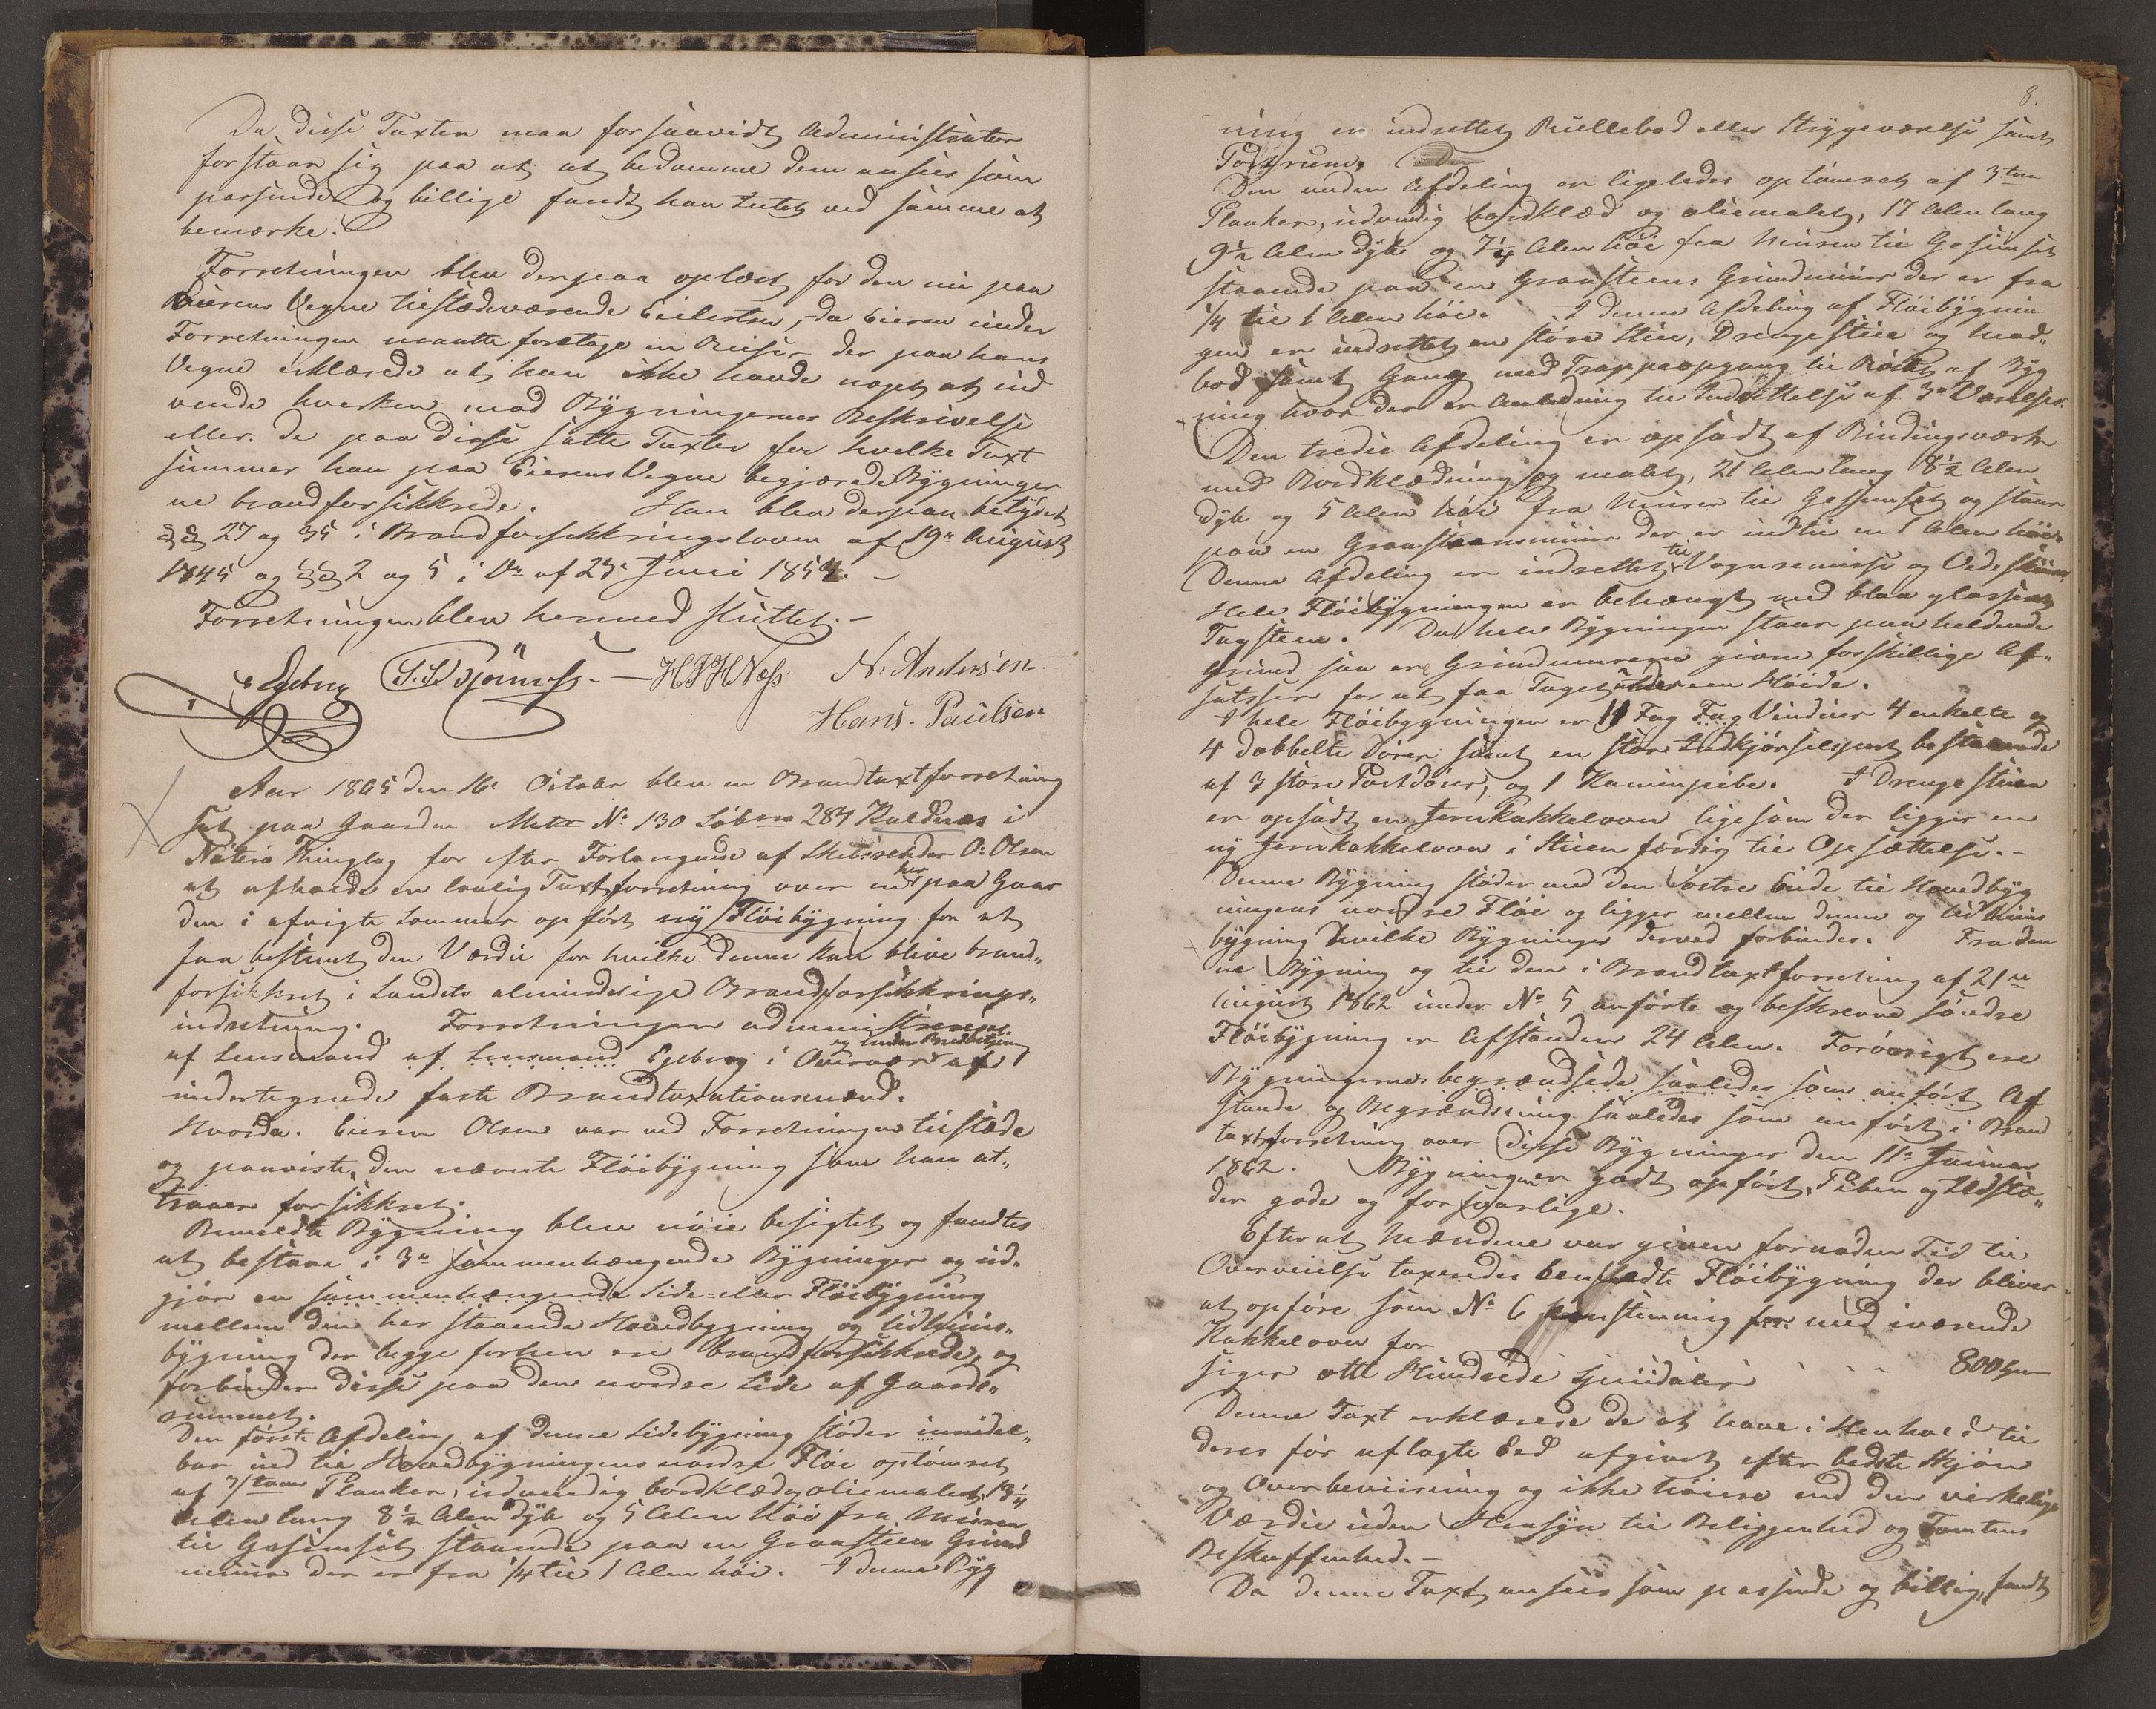 Da disse Taxter maa forsaavidt Administrator
forstaar sig paa at at bedømme dem ansees som
passende og billige fandt han Intet ved samme at
bemærke.
Forretningen blev derpaa oplæst for den nu paa
Eierens Vegne tilstædeværende Eilertsen, da Eieren under
Forretningen maatte foretage en Reise, der paa hans
Vegne erklærede at han ikke havde noget at ind
vende hverken mod Bygningernes Beskrivelse
eller de paa disse satte Taxter for hvilke Taxt
summer han paa Eierens Vegne begjærede Bygninger
ne brandforsikkrede. Han blev derpaa betydet
§§ 27 og 35 i Brandforsikkringsloven af 19de August
1845 og §§ 2 og 5 i Do af 25. Juni 1854. –
Forretningen blev hermed sluttet. –
Egeberg S. S. Bjønness. – H P H Næss N. Andersen
Hans. Paulsen
Aar 1865 den 16. October blev en Brandtaxtforretning
sat paa Gaarden Matr No 130 Løbno 284 Kaldnæs i
Nøterø Thinglag for efter Forlangende af Skibsreder O. Olsen
at afholde en lovlig Taxtforretning over en her paa Gaar
den i afvigte Sommer opført ny Fløibygning for at
faa bestemt den Værdie for hvilke denne kan blive brand„
forsikkret i Landets almindelige Brandforsikkrings„
indretning. Forretningen administreredes
og under Bredbetjening
af Lensmand af Lensmand Egeberg i Overvær af
undertegnede faste Brandtaxationsmænd.
Hvorda. Eieren Olsen var ved Forretningen tilstæde
og paaviste den nævnte Fløibygning som han at„
traaer forsikkret.
Bemeldte Bygning blev nøie besigtet og fandtes
at bestaae i 3de sammenhængende Bygninger og ud„
gjør en sammenhængende Side= eller Fløibygning
mellem den her staaende Hovedbygning og Udhuus„
bygning der begge forhen ere brandforsikkrede, og
forbinder disse paa den nordre Side af Gaards„
rummet.
Den første Afdeling af denne Sidebygning støder umidel„
bar ind til Hovedbygningens nordre Fløi optømret
af 3 toms Planker, udvendig bordklæd og oliemalet, 13¼
Alen lang 8½ Alen dyb og 5 Alen høi fra Muren
til Gesimset staaende paa en Graasteens Grund
muur der er fra ¼ til 1 Alen høi. I denne Byg
8.
ning er indrettet Rullebod eller Strygeværelse samt
Den anden Afdeling er ligeledes optømret af 3 tom
Planker, udvendig bordklæd og oliemalet, 17 Alen lang
9½ Alen dyb og 7¼ Alen høi fra Muren til Gesimset
staaende paa en Graasteens Grundmuur der er fra
¼ til 1 Alen høi. I denne Afdeling af Fløibygnin
gen er indrettet en større Stue, Drengestue og Mad„
bod samt Gang med Trappeopgang til Røstet af Byg
ning hvor der er Anledning til Indrettelse af 3de Værelser.
Den tredie Afdeling er opsadt af Bindingsværk
med Bordklædning og malet, 21 Alen lang 8½ Alen
dyb og 5 Alen høi fra Muren til Gesimset og staar
paa en Graasteensmuur der er indtil en 1 Alen høi.
Denne Afdeling er indrettet til Vognremisse og Vedskuur.
Hele Fløibygningen er behængt med blaa glasseret
Tagsteen. Da hele Bygningen staar paa heldende
Grund saa er Grundmurene givne forskillige Af„
satser for at faa Taget under een Høide.
I hele Fløibygningen er 11 Fag Fag Vinduer 4 enkelte og
4 dobbelte Dører samt en stor Indkjørselsport bestaaende
af 3 store Portdører, og 1 Kaminpibe. I Drengestuen
er opsadt en Jernkakkelovn ligesom der ligger en
ny Jernkakkelovn i Stuen færdig til Opsættelse. –
Denne Bygning støder med den østre Ende til Hovedbyg
ningens nordre Fløi og ligger mellem denne og Udhuus
bygning hvilke Bygninger derved forbindes. Fra den
ne Bygning og til den i Brandtaxtforretning af 21de
August 1862 under No 5 anførte og beskrevne søndre
Fløibygning er Afstanden 24 Alen. Forøvrigt ere
Bygningernes begrændsede saaledes som anført Af
stande og Begrændsning saaledes som anført i Brand
taxtforretning over disse Bygninger den 11te Januar
1862. Bygningen er godt opført, Piben og Ildstæ„
der gode og forsvarlige.
Efterat Mændene var given fornøden Tid til
Overveielse taxeredes bemeldte Fløibygning der bliver
at opføre som No 6 eenstemmig for med iværende
Kakkelovn for
siger otte Hundrede Speciedaler 800 Spd
Denne Taxt erklærede de at have i Henhold til
deres før aflagte Eed afgivet efter bedste Skjøn
og Overbeviisning og ikke høiere end den virkelige
Værdie uden Hensyn til Beliggenhed og Tomtens
Beskaffenhed. –
Da denne Taxt ansees som passende og billig, fandt